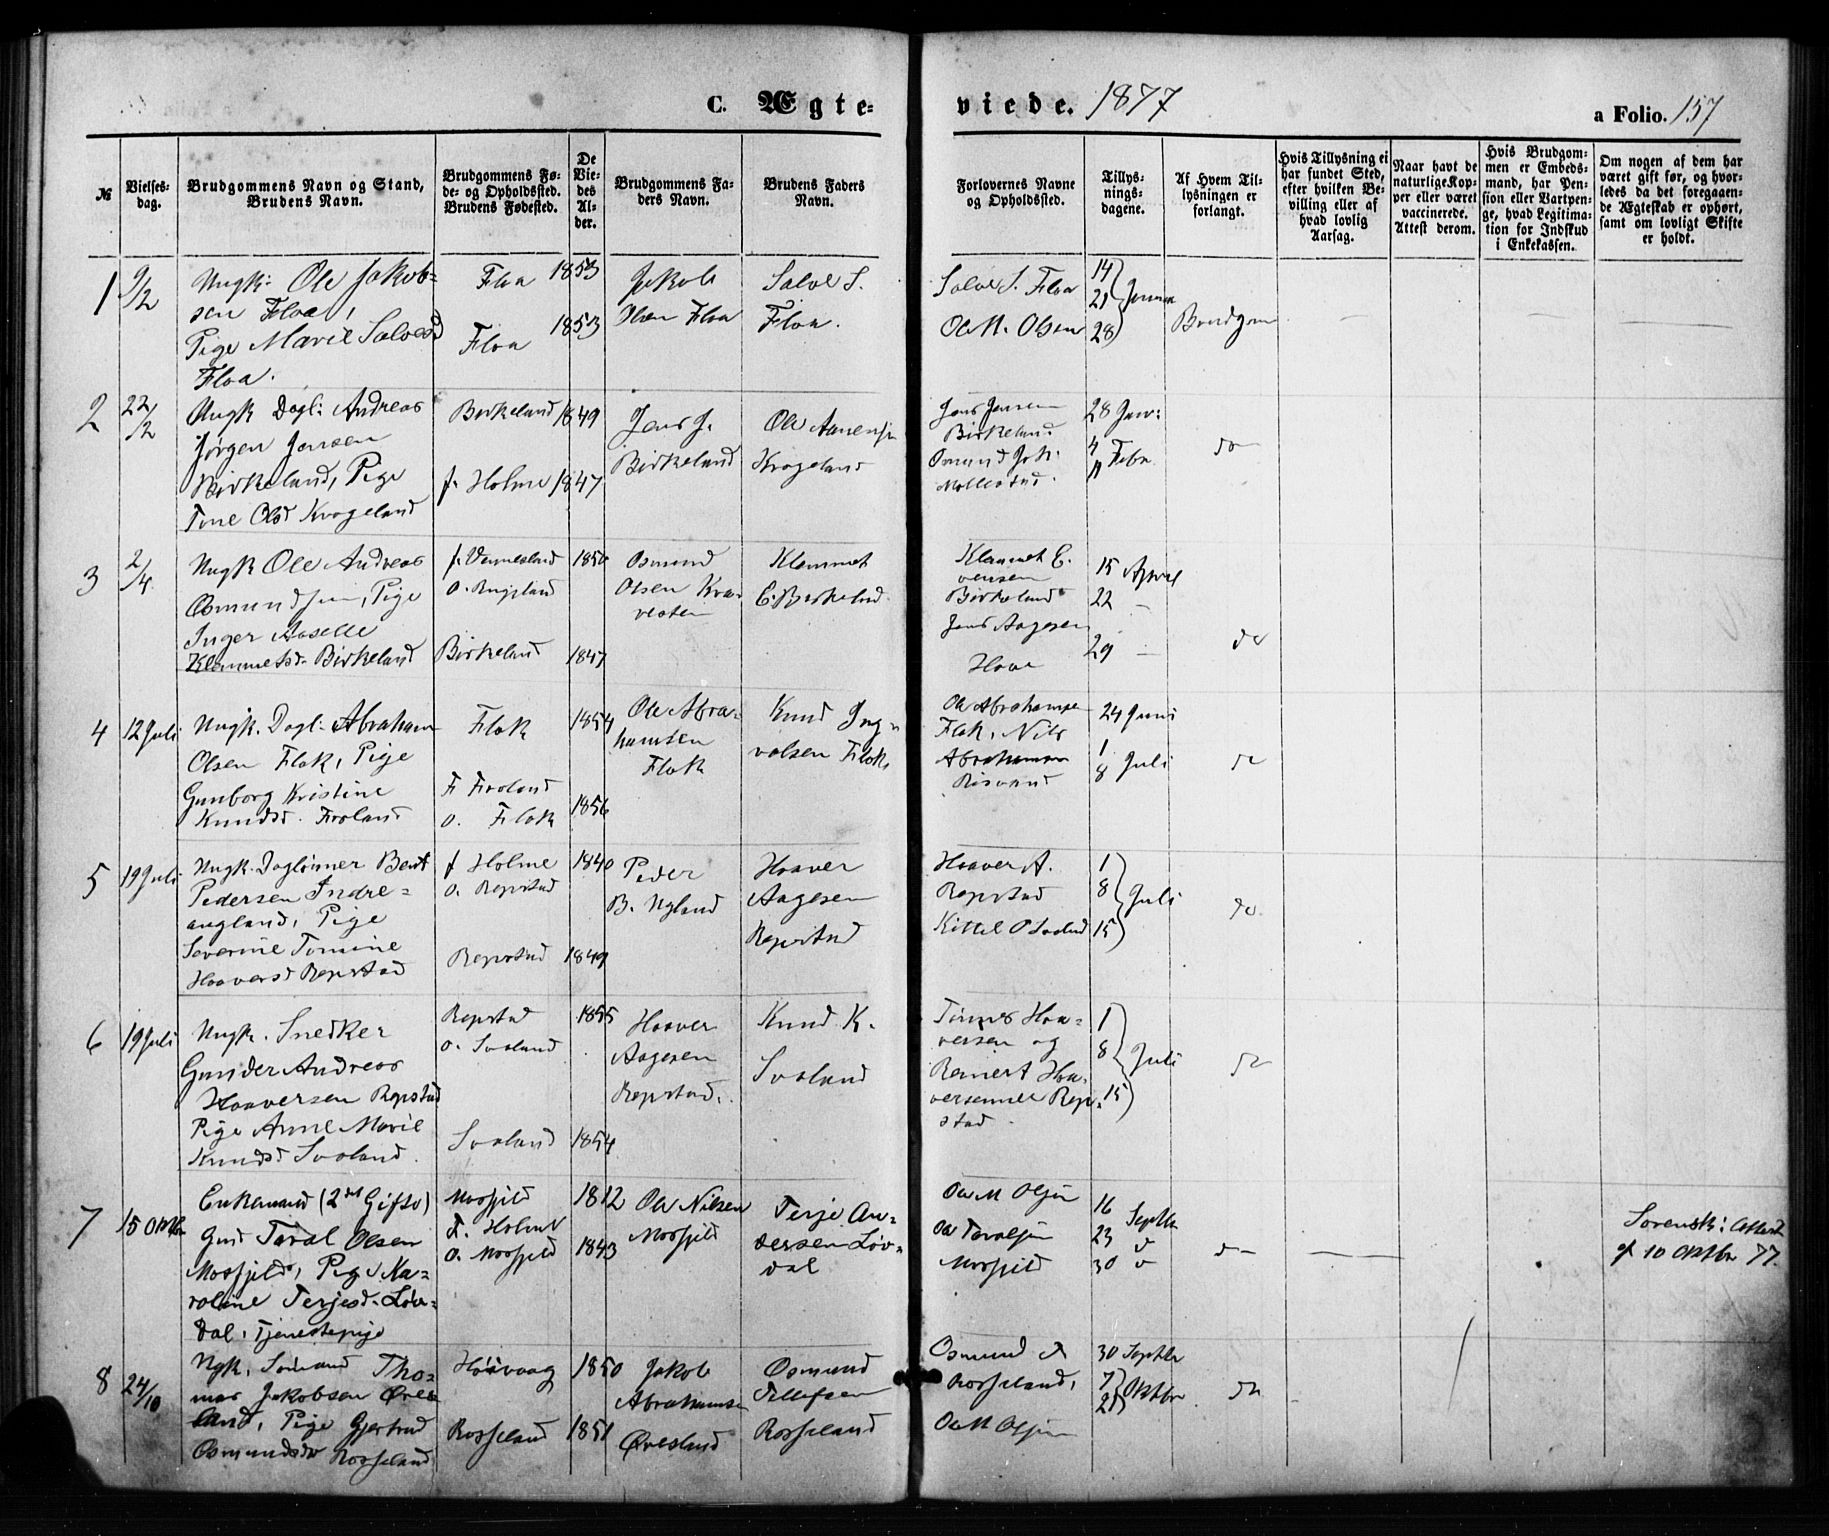 C. Ægte-
viede. 1877
a Folio. 157
№
Vielses-
dag.
Brudgommens Navn og Stand,
Brudens Navn.
Brudgommens Fø-
de- og Opholdssted.
Brudens Fødested.
De
Vie-
des
Al-
der.
Brudgommens Fa-
ders Navn.
Brudens Faders
Navn.
Forlovernes Navne
og Opholdssted.
Tillys-
nings-
dagene.
Af Hvem Til-
lysningen er
forlangt.
Hvis Tillysning ei
har fundet Sted,
efter hvilken Be-
villing eller af
hvad lovlig
Aarsag.
Naar havt de
naturlige Kop-
per eller været
vaccinerede.
Attest derom.
Hvis Brudgom-
men er Embeds-
mand, har Pen-
sion eller Vartpen-
ge, hvad Legitima-
tion for Indskud
i Enkekassen.
Om nogen af dem har
været gift før, og hvor-
ledes da det foregaaen-
de Ægteskab er ophørt,
samt om lovligt Skifte
er holdt.
1 9/2
Ungk: Ole Jakob-
sen Floa,
Pige Marie Salvesd
Floa.
Floa 1853
Floa 1853
Jakob
Olsen Floa
Salve S.
Floa.
Salve S. Floa
Ole M. Olsen
14
21 Januar
28
Brudgom
2 22/2
Ungk Dagl: Andreas
Jørgen Jensen
Birkeland, Pige
Tone Olsd Krogeland
Birkeland 1849
f. Holme 1847
Jens J.
Birkeland
Ole Aanensen
Krogeland
Jens Jensen
Birkeland
Osmund Joh.
28 Janr:
4 Febr.
11
do
3 2/4
Ungk Ole Andreas
Osmundsen, Pige
Inger Aaselle
Klemmetsd. Birkeland
f. Vennesland 1850
Birkeland 1847
Osmund
Olsen Kra-
Klemmet
E. Birkeland
Klemmet E.
vensen
Birkeland
Jens Aagesen
15 April
22 –
29 –
do
4 12 Juli
Ungk. Dagl. Abraham
Olsen Flak, Pige
Gunborg Kristine
Knudsd. Froland
Flak 1854
F. Froland
o. Flak 1856
Ole Abra-
hamsen
Flak
Knud Ing-
valsen Flak.
Ole Abrahamsen
Flak, Nils
Abrahamsen
Risvand
24 Juni
1
8 Juli
do
5 19 Juli
Ungk. Dagløinner Bent
Pedersen Indre-
augland, Pige
Severine Tomine
Haaversd Repstad
f Holme 1840
o. Repstad
Repstad 1849
Peder
B. Ugland
Haaver
Aagesen
Repstad
Haaver A.
Repstad
1
8 Juli
15
do.
6 19 Juli
Ungk. Snedker
Gunder Andreas
Haaversen Repstad
Pige Anne Marie
Knudsd Svaland.
Repstad 1855
o. Svaland
Svaland 1854
Haaver
Aagesen
Repstad.
Knud K.
Svaland
Tønnes Haa-
versen og
Reinert Haa-
versen Rep-
stad.
1
8 Juli
15
do
7 15 Oktbr
Enkemand (2det Gifte)
Taral Olsen
Mosfjeld, Pige Ka-
roline Terjesd. Løv-
dal, Tjenestepige
Mosfjeld 1812
F. Holme
o. Mosfjeld 1843
Ole Nilsen
Mosfjeld
Terje An-
dersen Løv-
dal
Ole M Olsen
Ole Taralsen
Mosfjeld
16
23 Septbr
30
do
Sorensk: Attest
af 10 Oktbr 77.
8 24/10
Ugk. Tho-
mas Jakobsen Øves-
land, Pige Gjertrud
Osmundsdr Rosseland
Høivaag 1850
Rosseland 1851
Jakob
Abrahamsen
Øvesland
Osmund
Tellefsen
Rosseland
Osmund T
Rosseland,
Ole M Olsen
30 Septbr
7 Oktbr
21
do